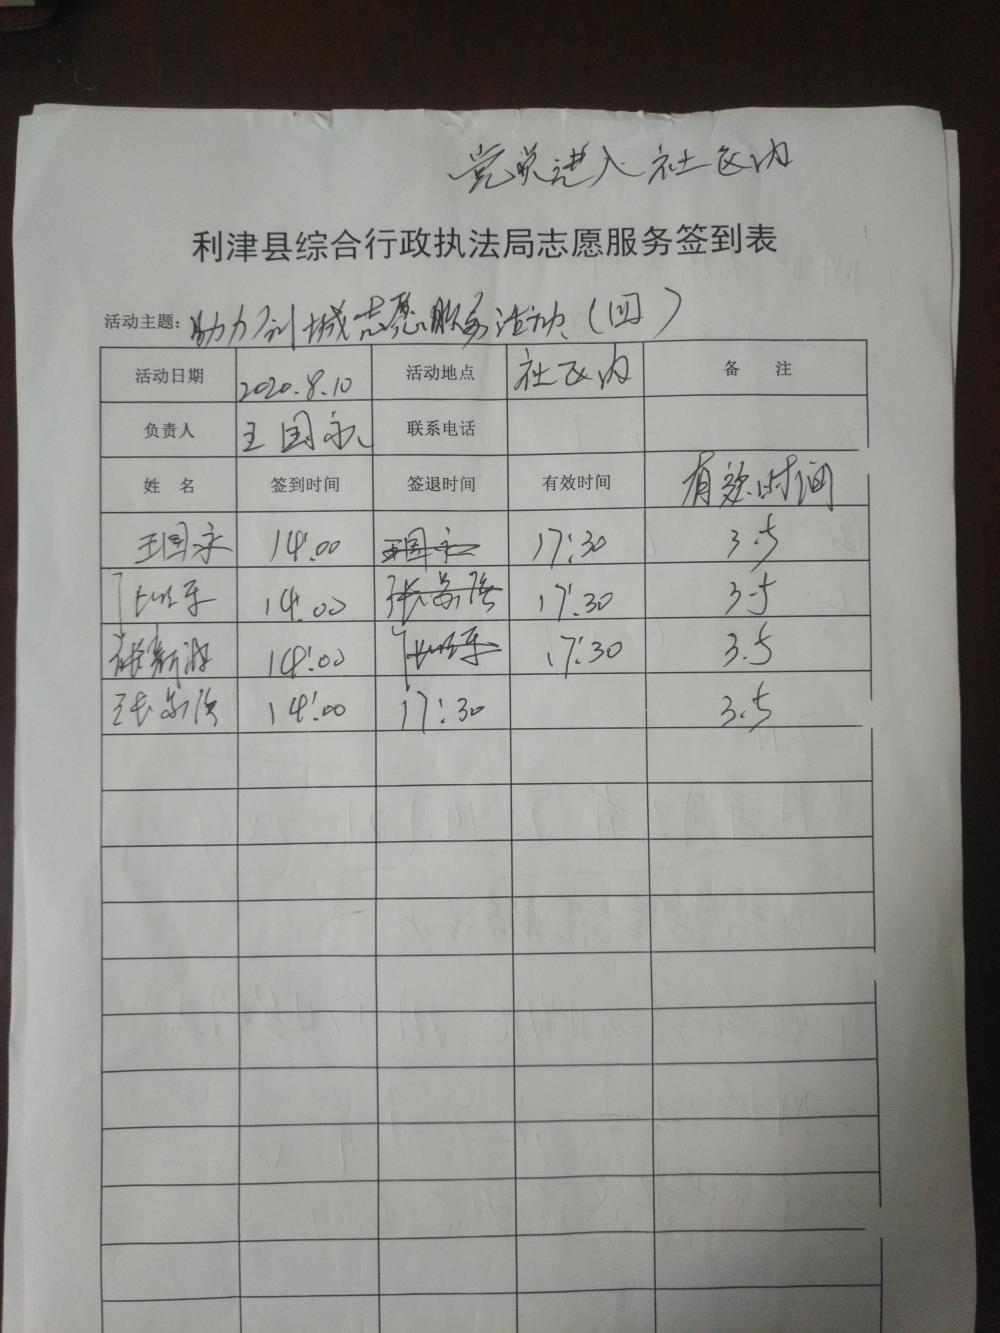 党员进入社区内
利津县综合行政执法局志愿服务签到表
活动主题: 助力创城志愿服务活动（四）
活动日期 2020.8.10 活动地点 社区内 备 注
负责人 王国永 联系电话
姓 名 签到时间 签退时间 有效时间 有效时间
王国永 14:00 王国永 17:30 3.5
14:00 17:30 3.5
14:00 17:30 3.5
14:00 17:30 3.5